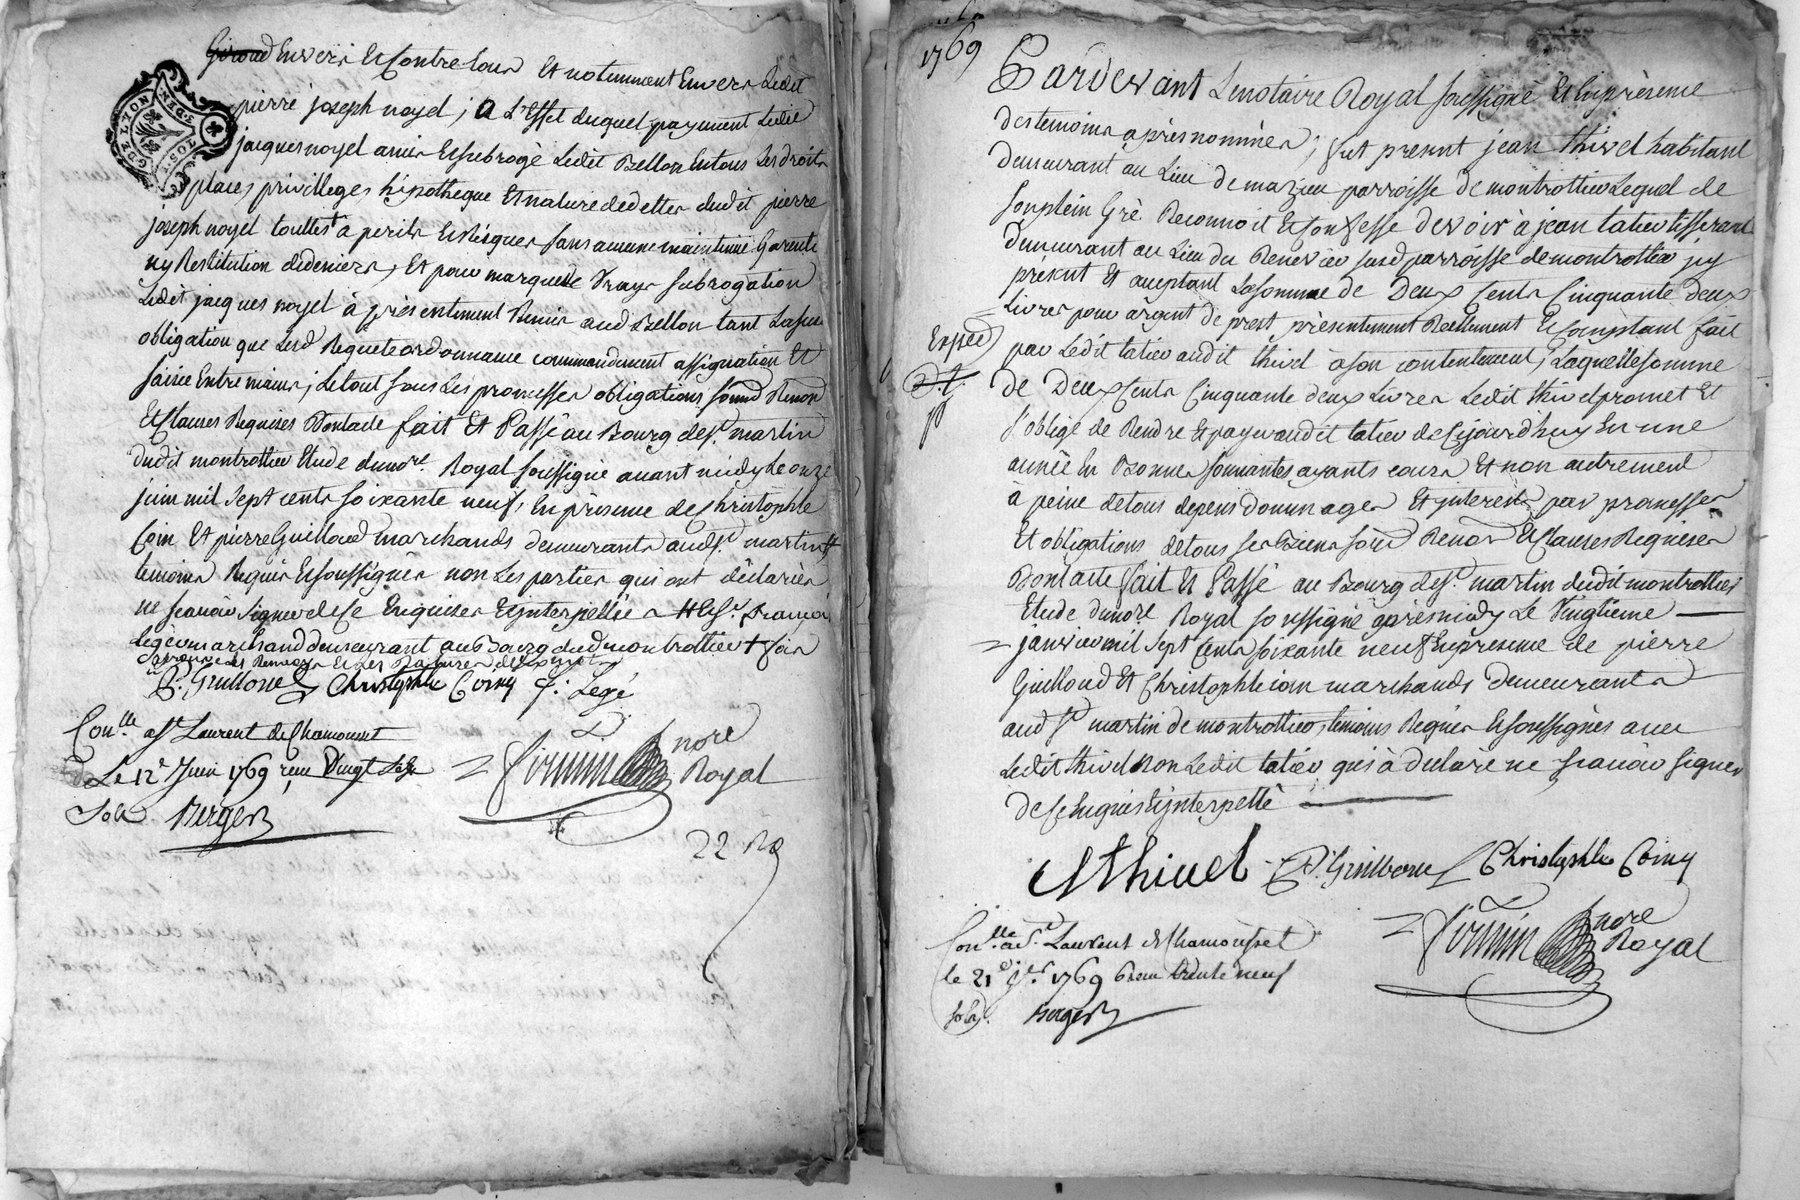 Giroud Envers Et Contre tous Et notamment Envers Ledit
pierre joseph noyel ; a L'Effet duquel payement Ledit
jacques noyel a mis Et subrogé Ledit Bellon En tous Les droits
places privilleges hipotheque Et nature dedettes dudit pierre
joseph noyel touttes à perils Et Risques sans aucune maintenüe Garentie
ny Restitution dedeniers, Et pour marque de Vraye subrogation
Ledit jacques noyel à présentement Remis aud Bellon tant Lasus
obligation que Lesd Requete ordonnance commandement assignation Et
saisie Entre mains ; Le tout sous Les promesses obligations soumd Renon
Et Clauses Requises Dont acte fait Et Passé au Bourg de St. martin
dudit montrottier Etude du nore. Royal soussigné avant midy Le onze
juin mil sept cents soixante neuf, En présence de Christophle
Coin Et pierre Guilloud marchands demeurants aud St. martin
temoins Requis Et soussignés non Les parties qui ont déclarés
ne scavoir signer de ce Enquises Et jnterpellées Et Sr. françois
Legé marchand demeurant au Bourg dud montrottier
P. Guilloud Christophle Coiny f. Legé
Conlle. a St Laurent de Chamousset
Le 12e Juin 1769 reçu Vingt
sols Berger
Firmin nore Royal
22
1769
Pardevant Le notaire Royal soussigné Et En présence
des temoins après nommés, fut present jean thivel habitant
demeurant au Lieu de mazieu parroisse de montrottier Lequel de
son plein Gré Reconnoit Et Confesse devoir à jean tatier tisserant
demeurant au Lieu du Renevier susd parroisse de montrottier jcy
présent Et acceptant La somme de Deux Cents Cinquante deux
Livres pour argent de prest présentement Reellement Et Comptant fait
Exped
par Ledit tatier audit thivel à son contentement, Laquelle somme
de Deux Cents Cinquante deux Livres Ledit thivel promet Et
s'oblige de Rendre Et payer audit tatier de Cejourdhuy En une
année En Bonnes sonnantes ayants cours Et non autrement
à peine de tous depens dommages Et jnterets par promesses
Et obligations de tous ses Biens soum Renon Et Clauses Requises
Dont acte fait Et Passé au Bourg de St. martin dudit montrottier
Etude du nore. Royal soussigné après midy Le Vingtieme
janvier mil sept Cents soixante neuf En présence de pierre
Guilloud Et Christophle Coin marchands demeurants
aud St martin de montrottier, temoins Requis Et soussignés avec
Ledit thivel non Ledit tatier qui à déclaré ne scavoir signer
de ce Enquis Et jnterpellé
thivel P. Guilloud Christophle Coiny
Conlle. a St. Laurent de Chamousset
le 21e jer. 1769 reçu trente neuf
sols. Berger
Firmin nore Royal